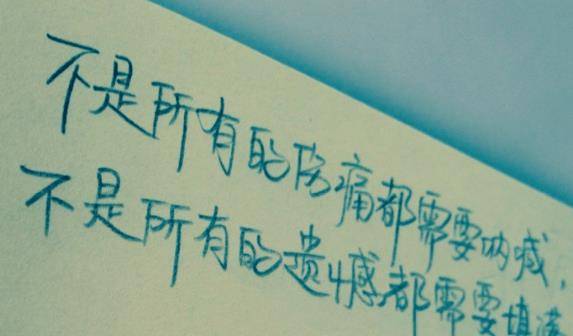 不是所有的伤痛都需要呐喊，
不是所有的遗憾都需要填